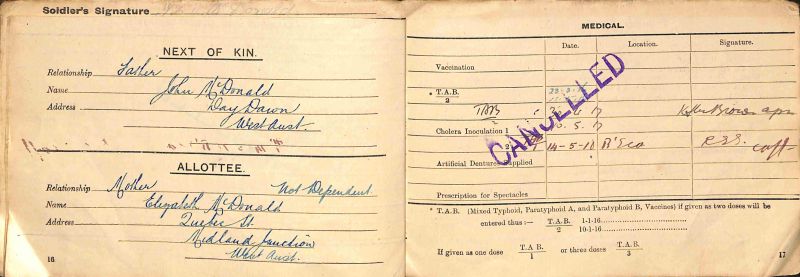 Soldier's Signature
NEXT OF KIN.
Relationship Father
Name John McDonald
Address Day Dawn
West Aust.
ALLOTTEE.
Relationship Mother Not Dependent
Name Elizabeth McDonald
Address Quebec St
Midland Junction
West Aust.
16
MEDICAL.
Date. Location. Signature.
Vaccination
* T.A.B.
2
TAB
Cholera Inoculation 1 .5.17
CANCELLED
2 14-5-18 B'Sea Capt.
Artificial Dentures Supplied
Prescription for Spectacles
* T.A.B. (Mixed Typhoid, Paratyphoid A, and Paratyphoid B, Vaccines) if given as two doses will be
entered thus :— T.A.B. 1-1-16
2 10-1-16
If given as one dose T.A.B. or three doses T.A.B.
1 3
17